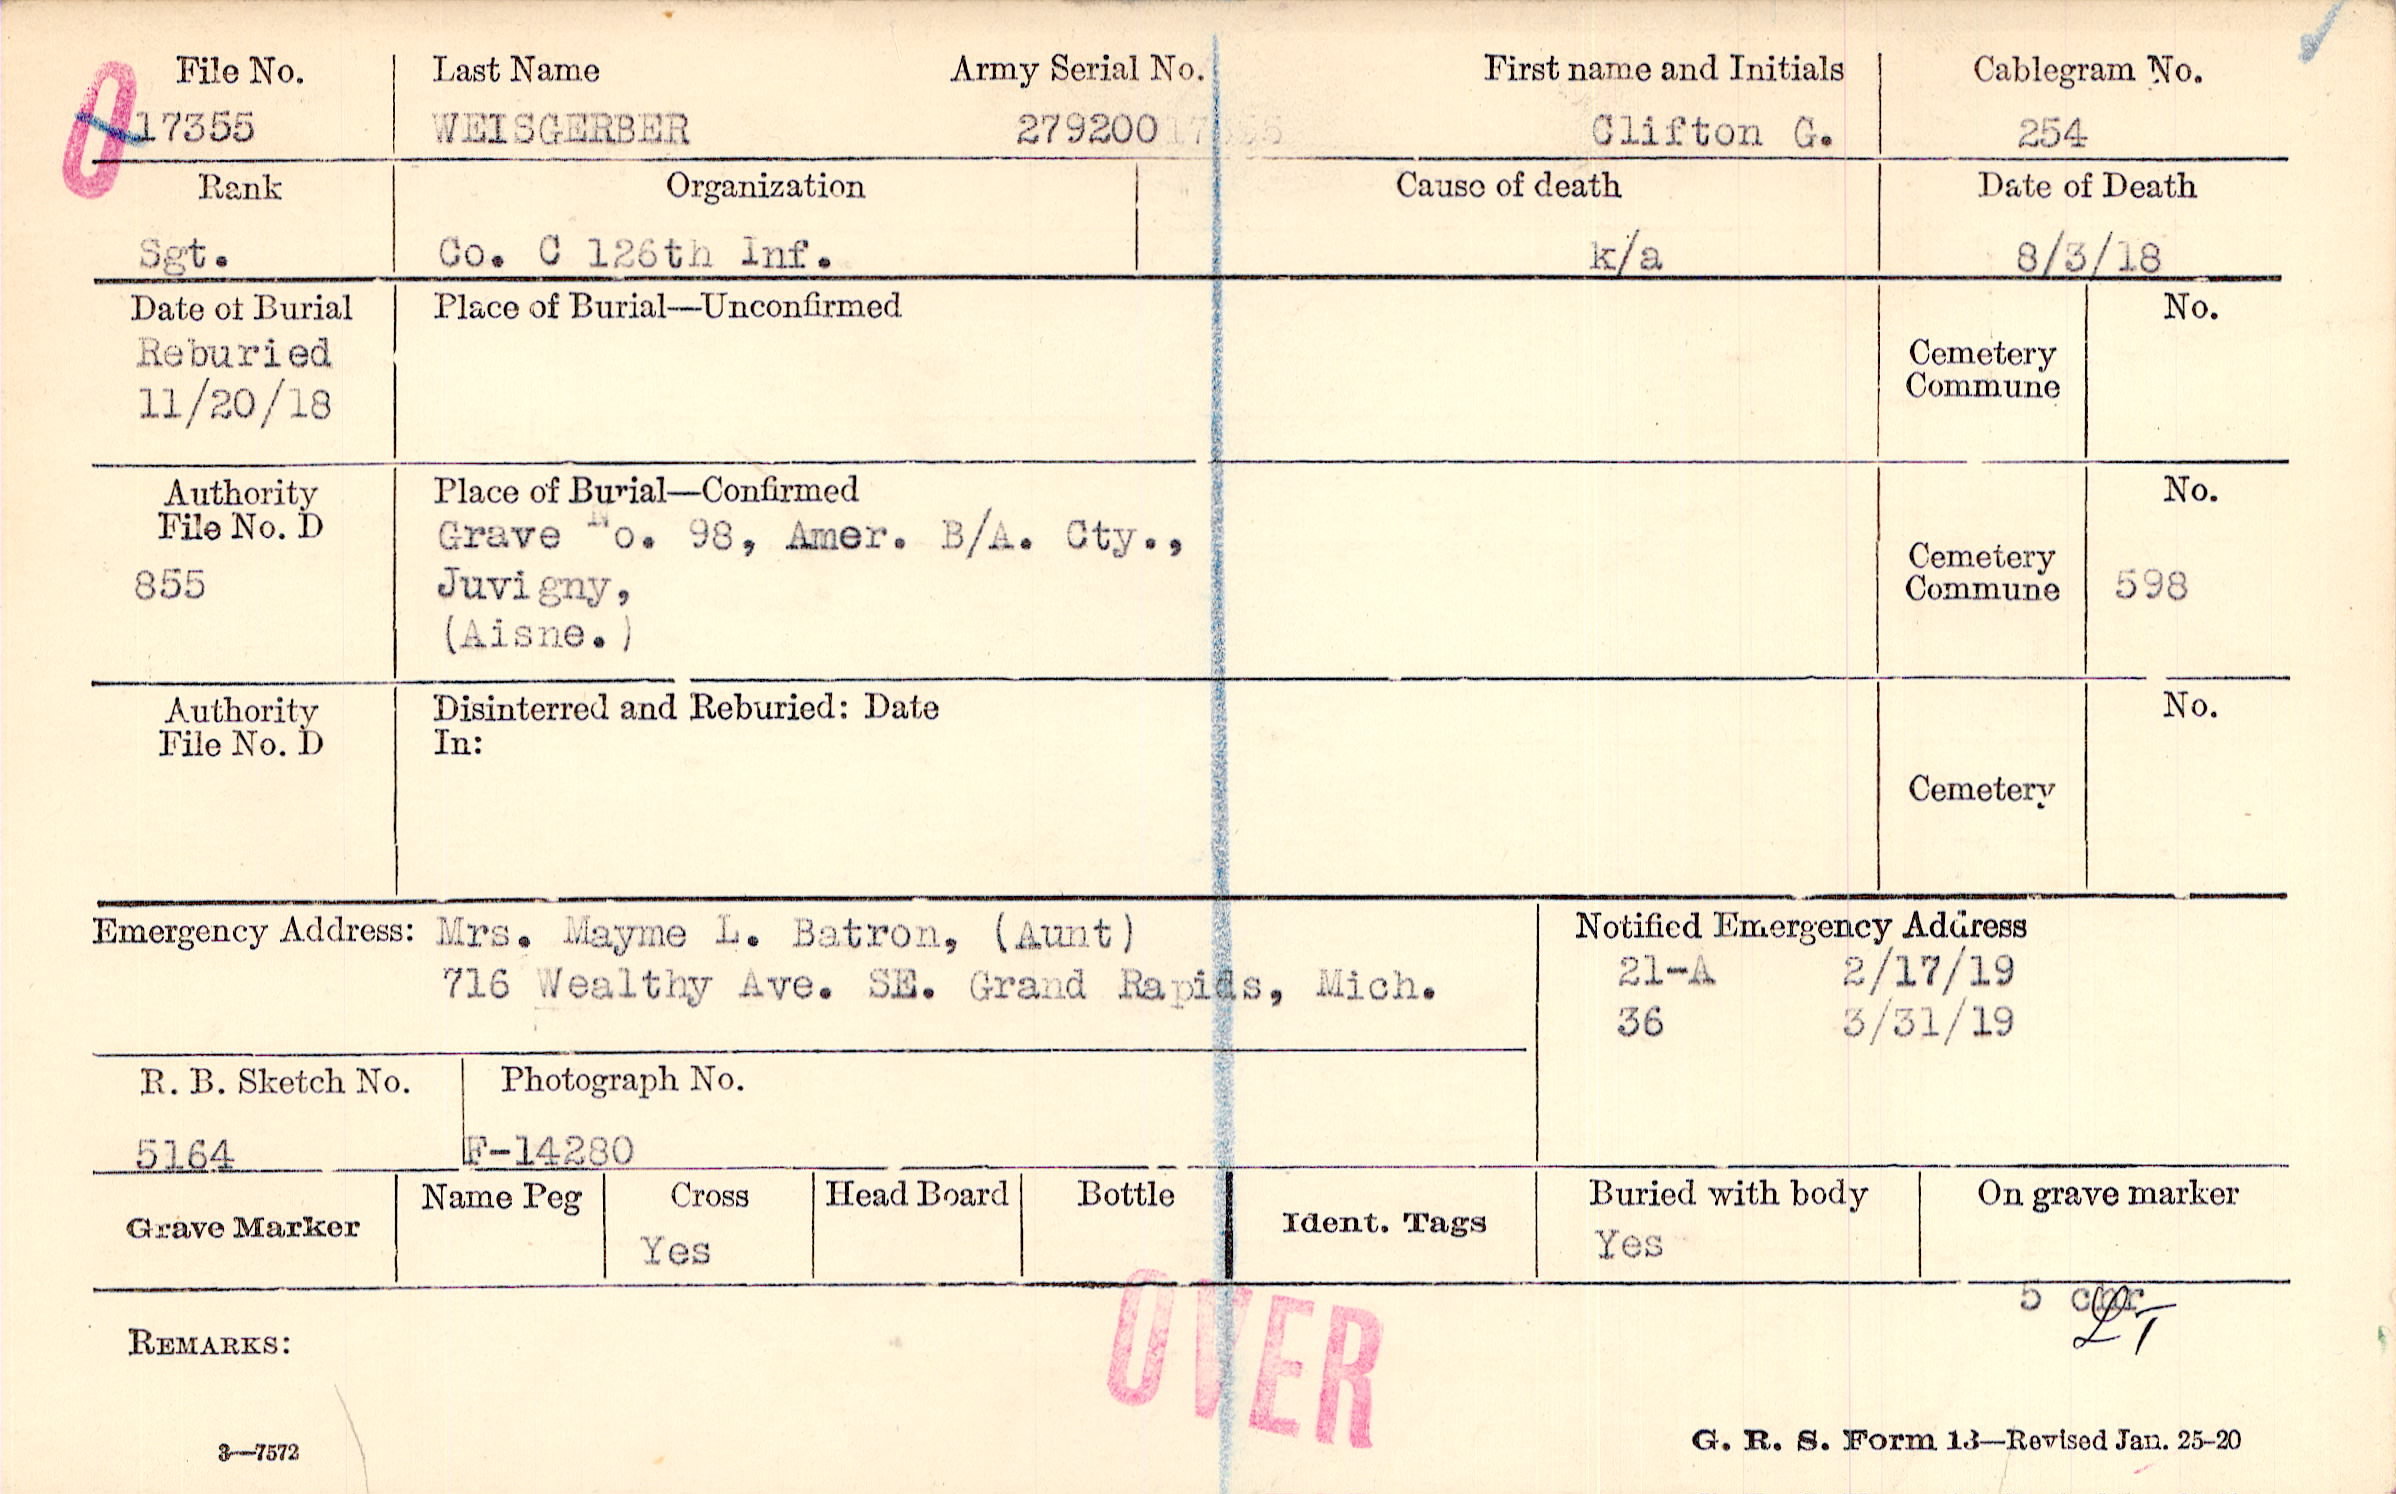 File No. Last Name Army Serial No. First name and Initials Cablegram No.
17355 WEISGERBER 279200 Clifton G. 254
Rank Organization Cause of death Date of Death
Sgt. Co. C 126th Inf. k/a 8/3/18
Date of Burial Place of Burial—Unconfirmed No.
Reburied
11/20/18
Cemetery
Commune
Authority Place of Burial—Confirmed No.
File No. D Grave No. 98, Amer. B/A. Cty.,
855 Juvigny, Cemetery
Commune 598
(Aisne.)
Authority Disinterred and Reburied: Date No.
File No. D In:
Cemetery
Emergency Address: Mrs. Mayme L. Batron, (Aunt) Notified Emergency Address
716 Wealthy Ave. SE. Grand Rapids, Mich. 21-A 2/17/19
36 3/31/19
R. B. Sketch No. Photograph No.
5164 F-14280
Grave Marker Name Peg Cross Head Board Bottle Ident. Tags Buried with body On grave marker
Yes Yes
5
REMARKS:
OVER
3—7572 G. R. S. Form 13—Revised Jan. 25-20